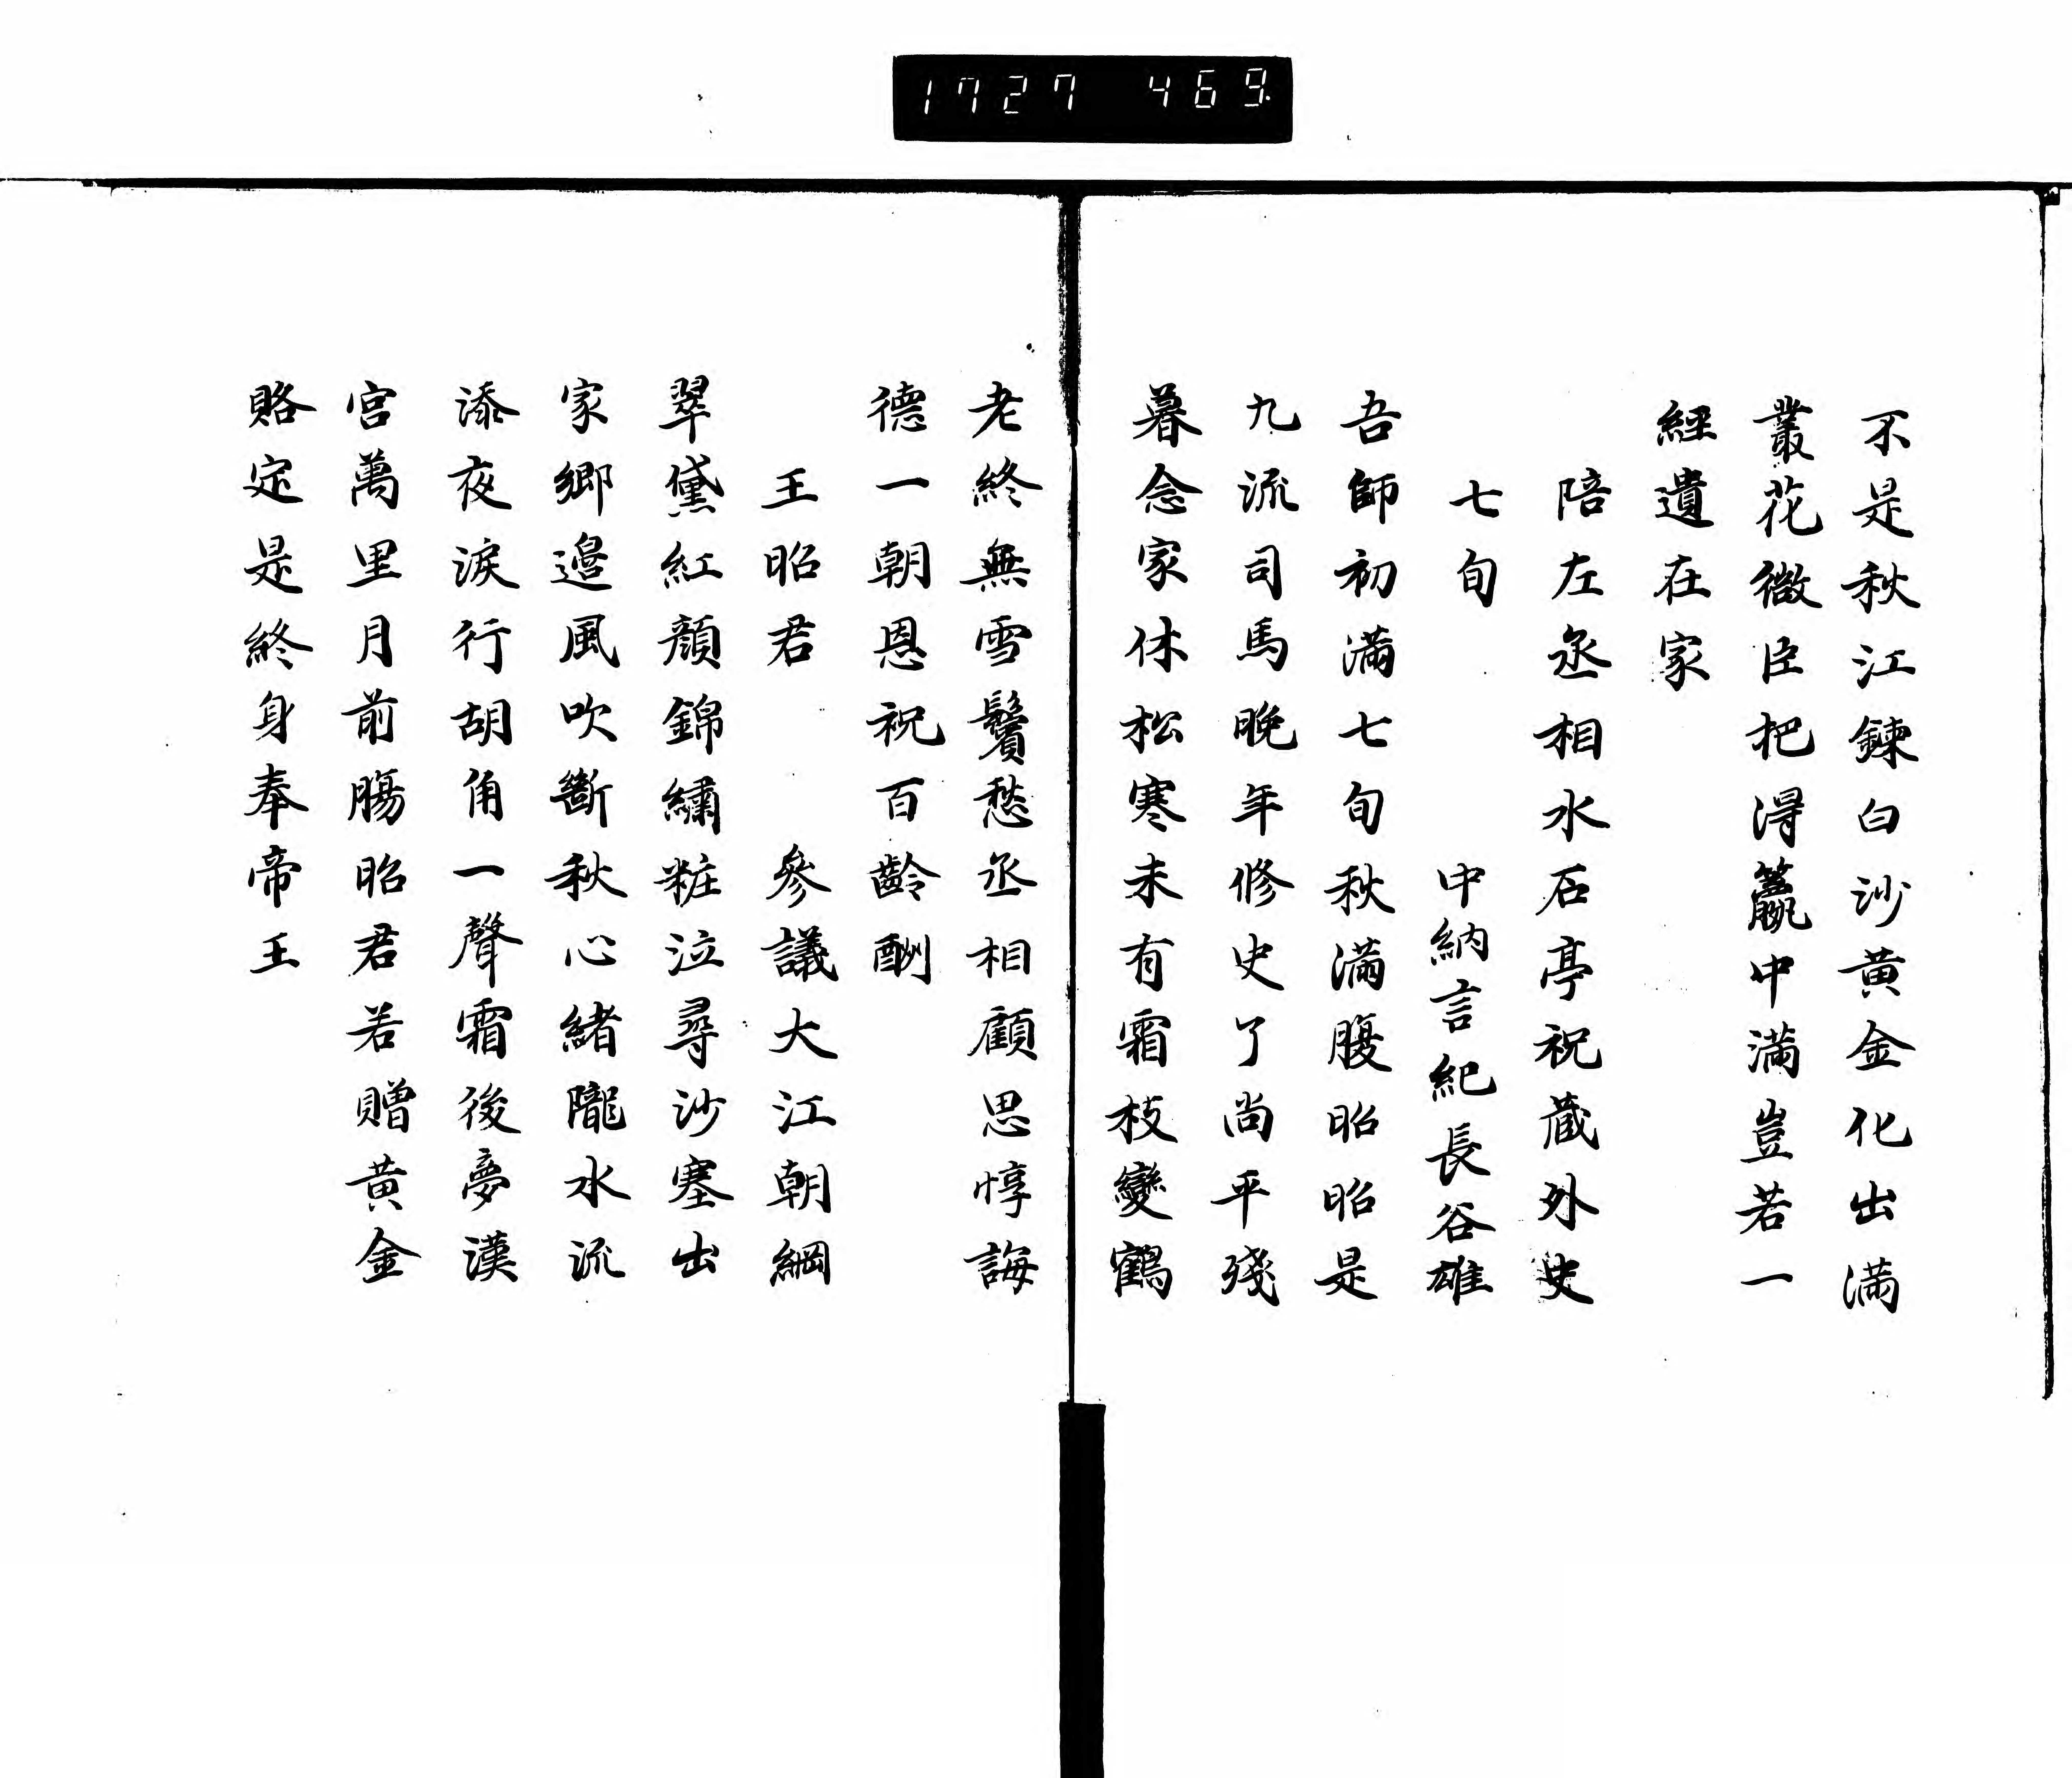 1727 469
不是秋江鍊白沙黄金化出満
叢花微臣把得籯中満豈若一
經遺在家
陪左丞相水石亭祝蔵外史
七旬
中納言紀長谷雄
吾師初满七旬秋満腹昭昭是
九流司馬晚年修史了尚平殘
暮念家休松寒未有霜枝變鶴
老終無雪鬢愁丞相顧思惇誨
德一朝恩祝百齡酬
王昭君 參議大江朝綱
翠黛紅顔錦繡粧泣尋沙塞出
家郷邊風吹斷秋心緒隴水流
添夜淚行胡角一聲霜後夢漢
宮萬里月前腸昭君若贈黄金
賂定是終身奉帝王